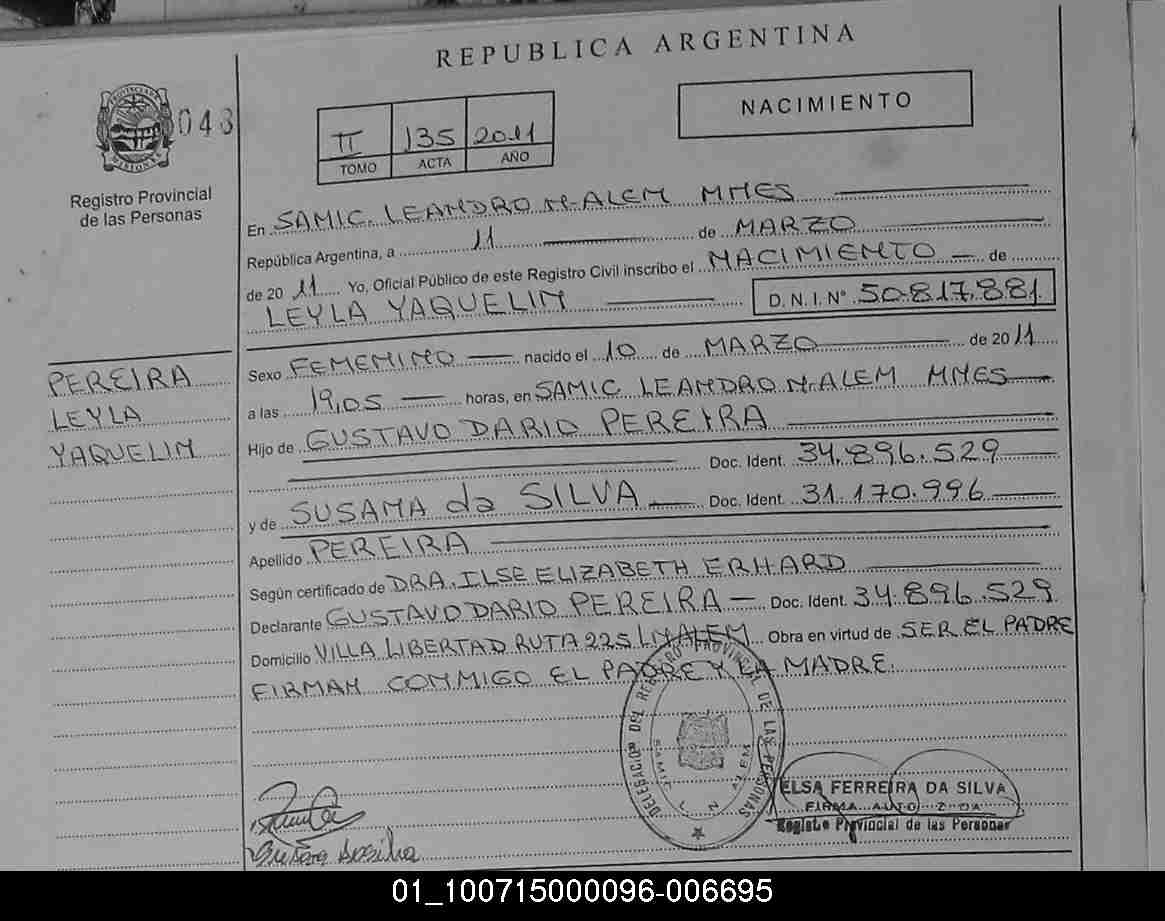 REPUBLICA ARGENTINA
PROVINCIA DE MISIONES
048
Registro Provincial
de las Personas
II 135 2011
TOMO ACTA AÑO
NACIMIENTO
En SAMIC. LEANDRO N. ALEM MNES
República Argentina, a 11 de MARZO
de 20 11 Yo, Oficial Público de este Registro Civil inscribo el NACIMIENTO de
LEYLA YAQUELIN D.N.I.Nº 50.817.881
Sexo FEMENINO nacido el 10 de MARZO de 2011
a las 19,05 horas, en SAMIC LEANDRO N. ALEM MNES
Hijo de GUSTAVO DARIO PEREIRA
Doc. Ident. 34.896.529
y de SUSANA da SILVA Doc. Ident. 31.170.996
Apellido PEREIRA
Según certificado de DRA. ILSE ELIZABETH ERHARD
Declarante GUSTAVO DARIO PEREIRA Doc. Ident. 34.896.529
Domicilio VILLA LIBERTAD RUTA 225 L.N.ALEM Obra en virtud de SER EL PADRE
FIRMAN CONMIGO EL PADRE Y LA MADRE.
PEREIRA
LEYLA
YAQUELIN
DELEGACION DEL REGISTRO PROVINCIAL DE LAS PERSONAS
SAMIC L. N. ALEM
ELSA FERREIRA DA SILVA
Registro Provincial de las Personas
01_100715000096-006695